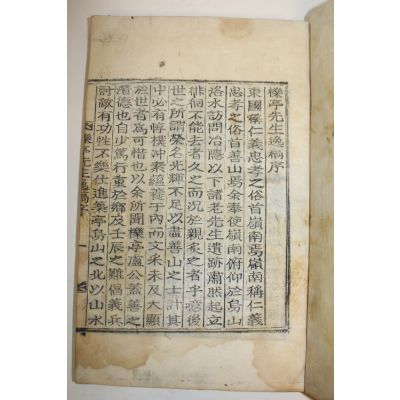 櫟亭先生逸稿序
東國稱仁義忠孝之俗首嶺南焉嶺南稱仁義
忠孝之俗首善山焉余奉使嶺南俯仰於烏山
洛水訪問冶隱以下諸老先生遺跡肅然起立
徘徊不能去者久之而况於親炙之者乎噫後
世之所謂榮名光輝不足以盡善山之士計其
中必有惇撲冲素蘊蓄于內而文采未及大顯
於世者爲可惜也以余所聞櫟亭盧公蓋善之
潛德也自少篤行重於鄕及壬辰之難倡義兵
討敵有功性不樂仕進築亭烏山之北以山水
櫟亭先生逸稿序
一